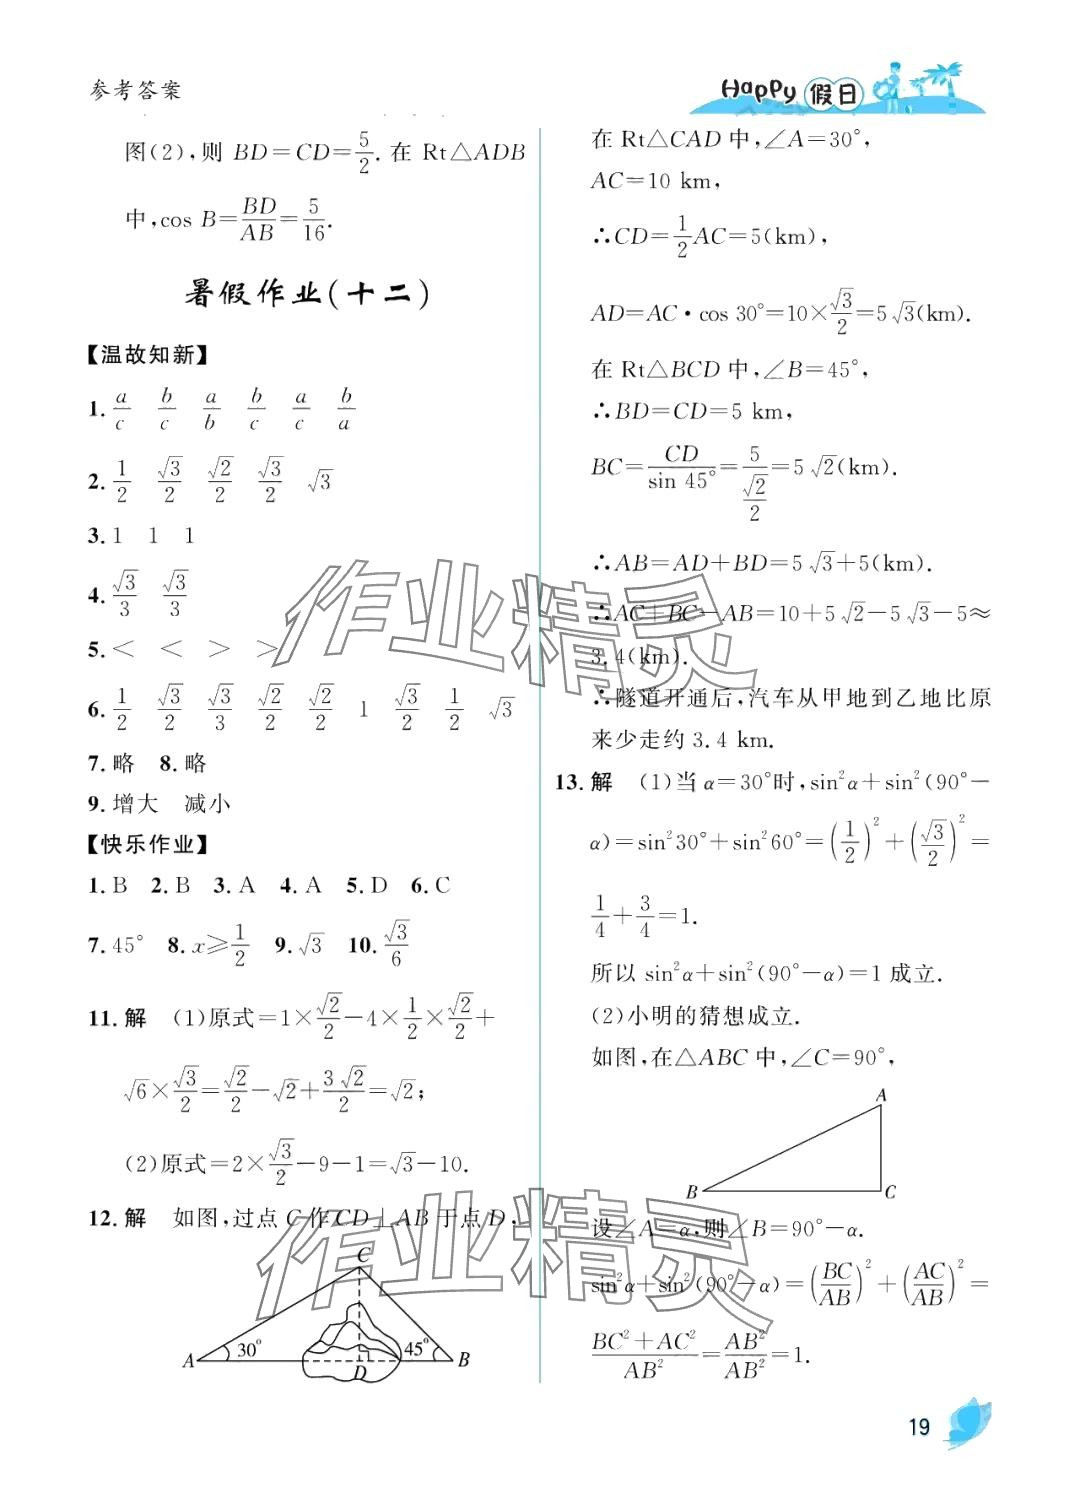 参考答案
Happy 假日
图(2),则 BD=CD=5/2.在 Rt△ADB
中,cos B=BD/AB=5/16.
暑假作业(十二)
【温故知新】
1. a/c b/c a/b b/c a/c b/a
2. 1/2 √3/2 √2/2 √3/2 √3
3. 1 1 1
4. √3/3 √3/3
5. < < > >
6. 1/2 √3/2 √3/3 √2/2 √2/2 1 √3/2 1/2 √3
7. 略 8. 略
9. 增大 减小
【快乐作业】
1. B 2. B 3. A 4. A 5. D 6. C
7. 45° 8. x≥1/2 9. √3 10. √3/6
11. 解 (1)原式=1×√2/2-4×1/2×√2/2+
√6×√3/2=√2/2-√2+3√2/2=√2;
(2)原式=2×√3/2-9-1=√3-10.
12. 解 如图,过点 C 作 CD⊥AB 于点 D,
C
A 30° D 45° B
在 Rt△CAD 中,∠A=30°,
AC=10 km,
∴CD=1/2AC=5(km),
AD=AC·cos 30°=10×√3/2=5√3(km).
在 Rt△BCD 中,∠B=45°,
∴BD=CD=5 km,
BC=CD/sin 45°=5/(√2/2)=5√2(km).
∴AB=AD+BD=5√3+5(km).
∴AC+BC-AB=10+5√2-5√3-5≈
3.4(km).
∴隧道开通后,汽车从甲地到乙地比原
来少走约 3.4 km.
13. 解 (1)当 α=30°时,sin²α+sin²(90°-
α)=sin²30°+sin²60°=(1/2)²+(√3/2)²=
1/4+3/4=1.
所以 sin²α+sin²(90°-α)=1 成立.
(2)小明的猜想成立.
如图,在△ABC 中,∠C=90°,
A
B C
设∠A=α,则∠B=90°-α.
sin²α+sin²(90°-α)=(BC/AB)²+(AC/AB)²=
(BC²+AC²)/AB²=AB²/AB²=1.
作业精灵
作业精灵
19